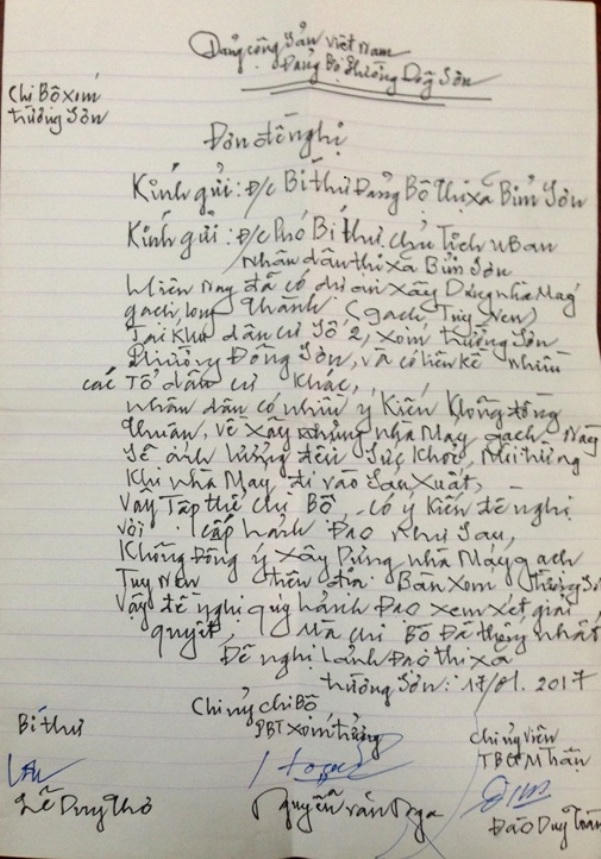 Đảng cộng sản việt Nam
Đảng Bộ phường Đông Sơn
Chi Bộ xóm
trường Sơn
Đơn đề nghị
Kính gửi: Đ/c Bí thư Đảng Bộ thị xã Bỉm Sơn
Kính gửi: đ/c Phó Bí thư, chủ tịch uBan
nhân dân thị xã Bỉm Sơn
Hiện nay đã có dự án xây Dựng nhà máy
gạch long thành (gạch Tuy nen)
Tại khu dân cư số 2, xóm trường Sơn
Phường Đông Sơn, và có liên kề nhiều
các Tổ dân cư khác,
nhân dân có nhiều ý kiến không đồng
thuận, về xây nhà máy gạch này
sẽ ảnh hưởng đến sức khoẻ, 
khi nhà máy đi vào sản xuất,
vậy Tập thể chi Bộ, có ý kiến đề nghị
với cấp lảnh đạo như sau,
không đồng ý xây dựng nhà máy gạch
Tuy nen trên địa Bàn xóm trường Sơn
vậy đề nghị quý lảnh đạo xem xét giải
quyết, mà chi Bộ Đã thống nhất
Đề nghị lảnh đạo thị xã
trường Sơn: 17/01. 2017
Chi ủy chi Bộ
Bí thư
PBT xóm trưởng
chi ủy viên
TBCT Mtrận
Lê Duy Thỏ
Nguyễn văn Nga
Đào Duy Toàn